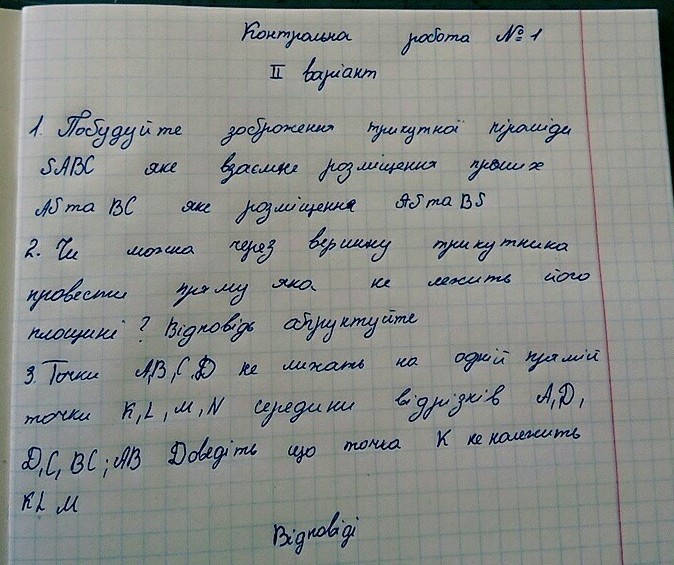 Контрольна робота № 1
II варіант
1. Побудуйте зоброження трикутної піраміди
SABC яке взаємне розміщення прямих
AS та BC яке розміщення AS та BS
2. Чи можна через вершину трикутника
провести пряму яка не лежить його
площині? Відповідь абґруктуйте
3. Точки A,B,C,D не лижать на одній прямій
точки K,L,M,N середини відрізків A,D,
D,C, BC; AB Доведіть що точка K не належить
KL M
Відповіді